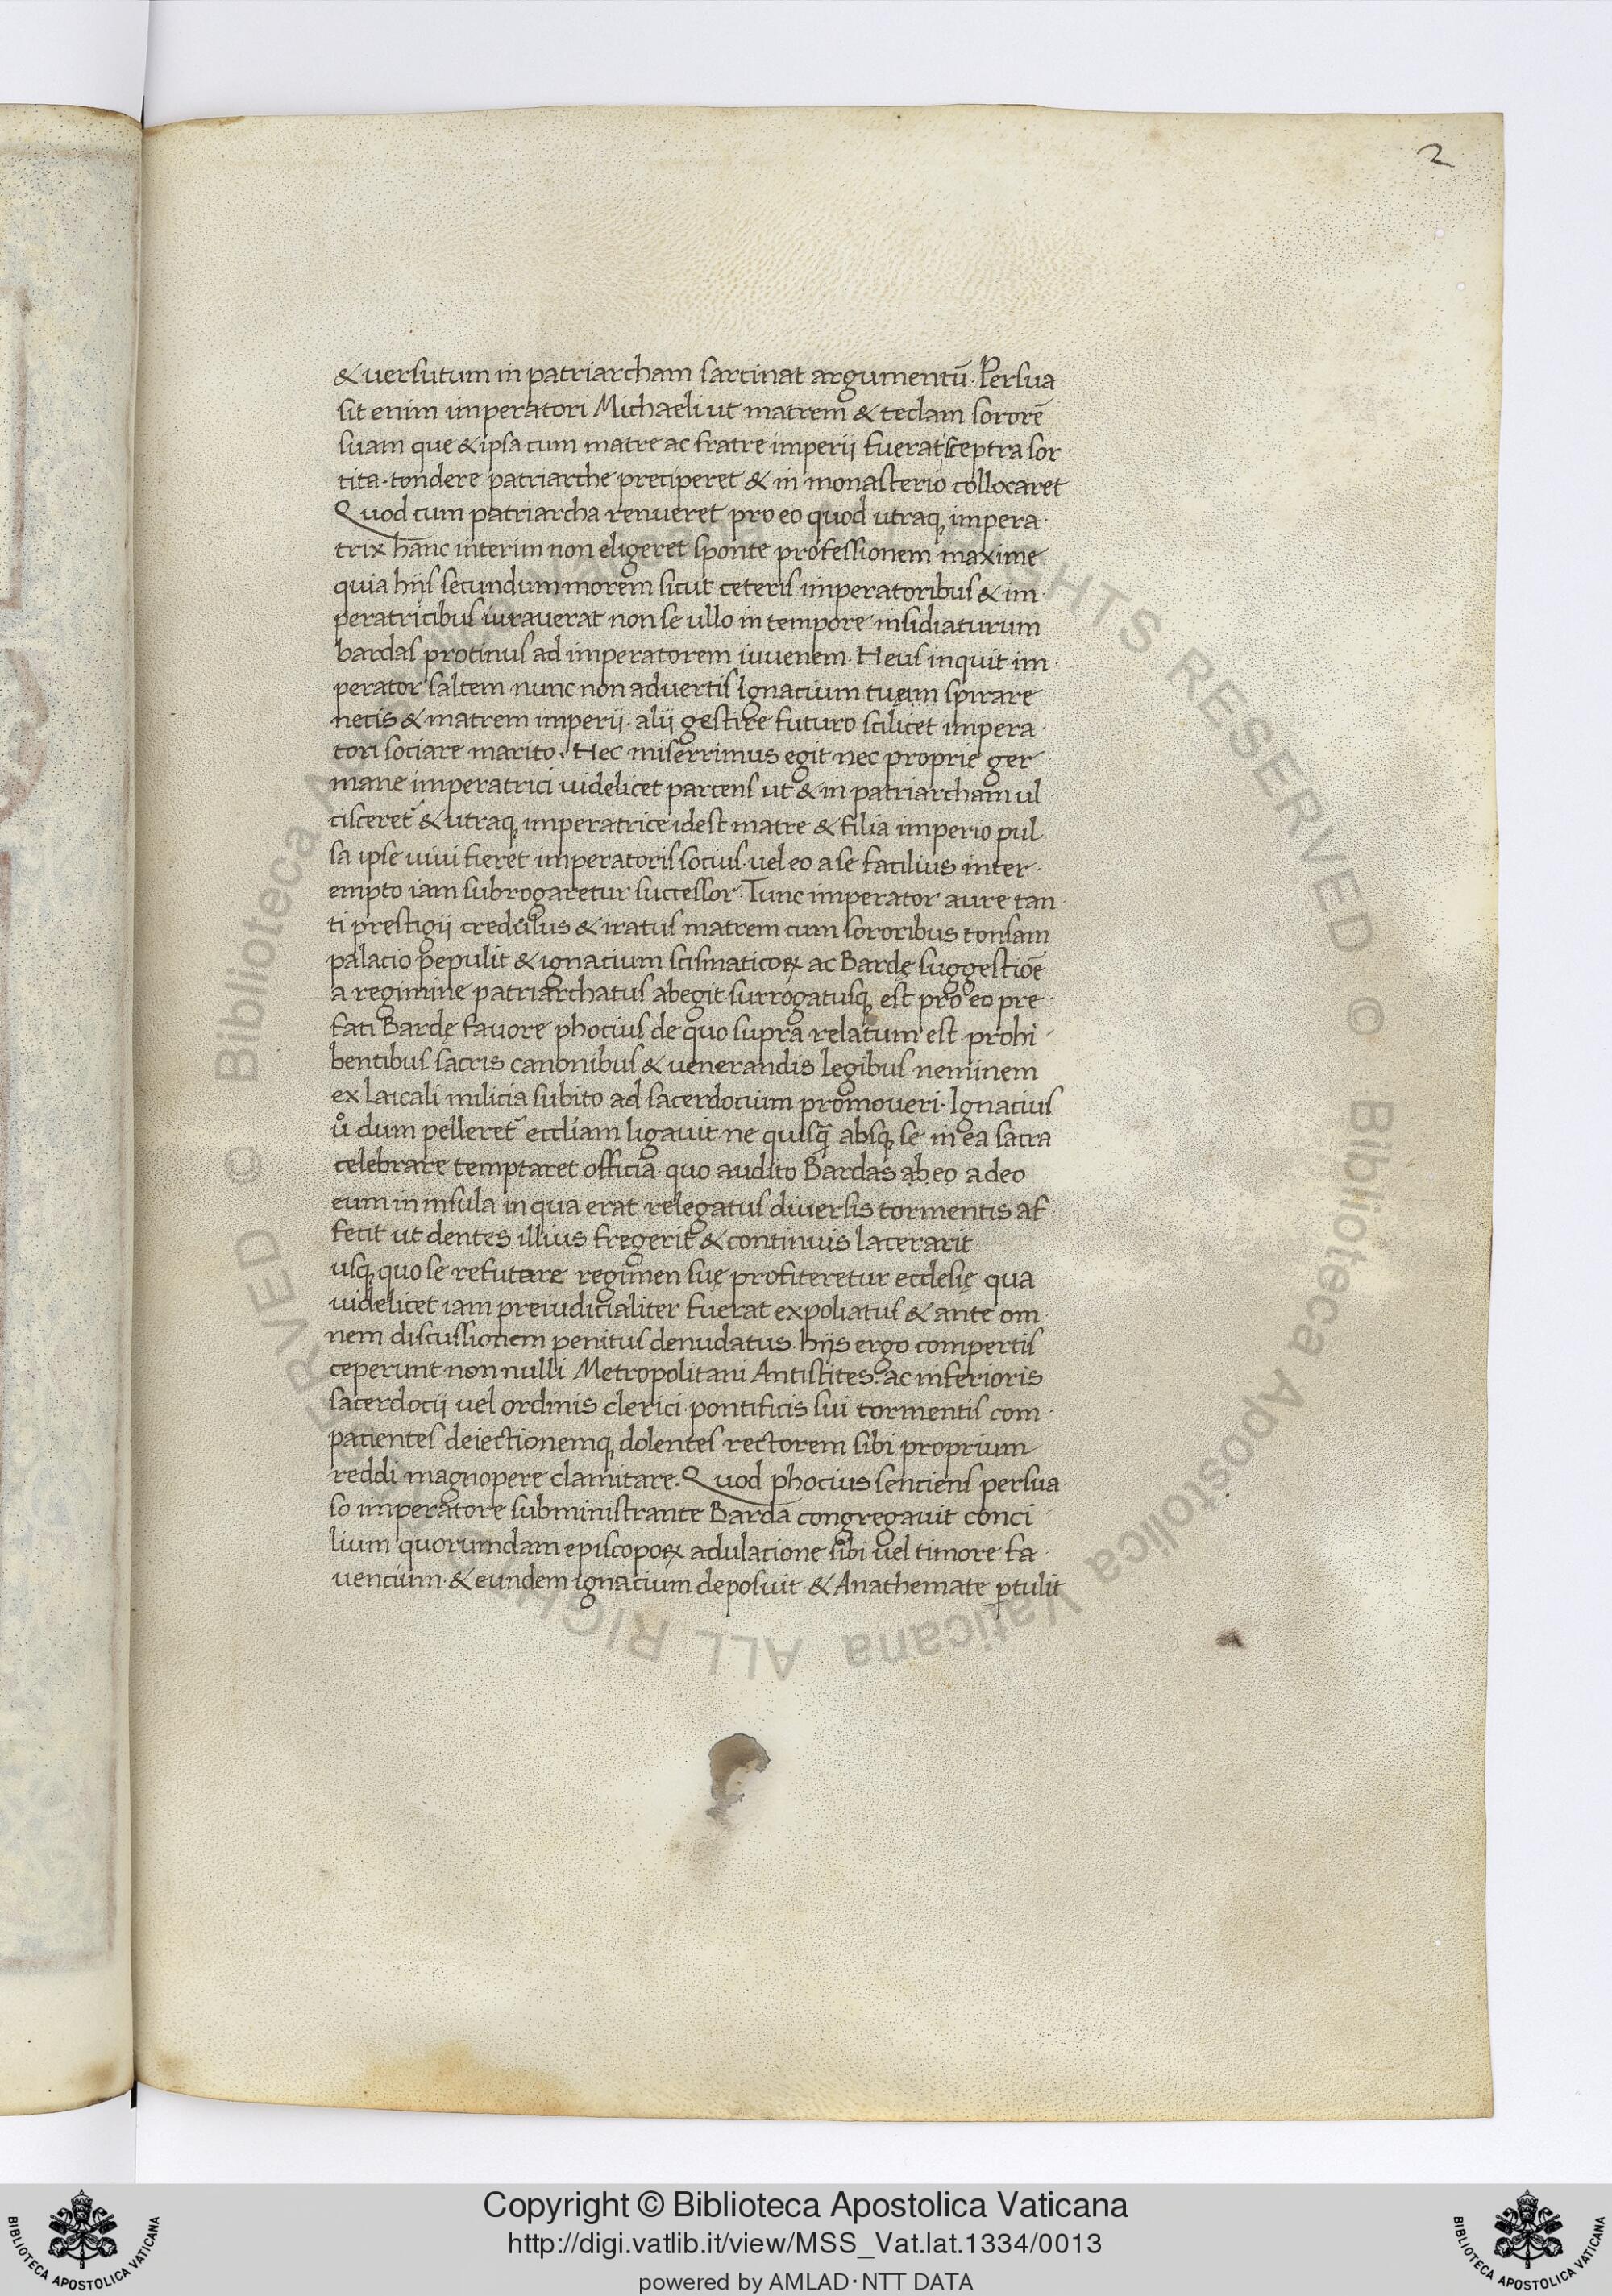 2
& versutum in patriarcham sarcinat argumentū. Persua
sit enim imperatori Michaeli ut matrem & teclam sororē
suam que & ipsa cum matre ac fratre imperii fuerat sceptra sor
tita. tondere patriarche preciperet & in monasterio collocaret
Quod cum patriarcha renueret pro eo quod utraq; impera
trix hanc interim non eligeret sponte professionem maxime
quia hijs secundum morem sicut ceteris imperatoribus & im
peratricibus iuraverat non se ullo in tempore insidiaturum
bardas protinus ad imperatorem iuvenem. Heus inquit im
perator saltem nunc non advertis Ignacium tuum spirare
necis & matrem imperii. alii gestire futuro scilicet impera
tori sociare marito. Hec miserrimus egit nec proprie ger
mane imperatrici videlicet parcens ut & in patriarcham ul
cisceret̃ & utraq; imperatrice idest matre & filia imperio pul
sa ipse vivi fieret imperatoris socius. vel eo a se facilius inter
empto iam subrogaretur successor. Tunc imperator aure tan
ti prestigii credulus & iratus matrem cum sororibus tonsam
palacio pepulit & ignacium scismaticoꝝ ac Bardę suggestiōe
a regimine patriarchatus abegit. surrogatusq; est pro eo pre
fati Bardę favore phocius de quo supra relatum est. prohi
bentibus sacris canonibus & venerandis legibus neminem
ex laicali milicia subito ad sacerdocium promoveri. Ignacius
ů dum pelleret̃ eccliam ligavit ne quisq̃ absq; se in ea sacra
celebrare temptaret officia. quo audito Bardas ab eo adeo
eum in insula in qua erat relegatus diversis tormentis af
fecit ut dentes illius fregerit & continuis lacerarit
usq; quo se refutare regimen suę profiteretur ecclesię qua
videlicet iam preiudicialiter fuerat expoliatus & ante om
nem discussionem penitus denudatus. hijs ergo compertis
ceperunt non nulli Metropolitani Antistites. ac inferioris
sacerdocij vel ordinis clerici pontificis sui tormentis com
pacientes deiectionemq; dolentes rectorem sibi proprium
reddi magnopere clamitare. Quod phocius senciens persua
so imperatore subministrante Barda congregavit conci
lium quorumdam episcopoꝝ adulacione sibi vel timore fa
vencium. & eundem ignacium deposuit & Anathemate ꝑtulit
Copyright © Biblioteca Apostolica Vaticana
http://digi.vatlib.it/view/MSS_Vat.lat.1334/0013
powered by AMLAD·NTT DATA
BIBLIOTECA APOSTOLICA VATICANA
BIBLIOTECA APOSTOLICA VATICANA
© Biblioteca Apostolica Vaticana ALL RIGHTS RESERVED © Biblioteca Apostolica Vaticana ALL RIGHTS RESERVED